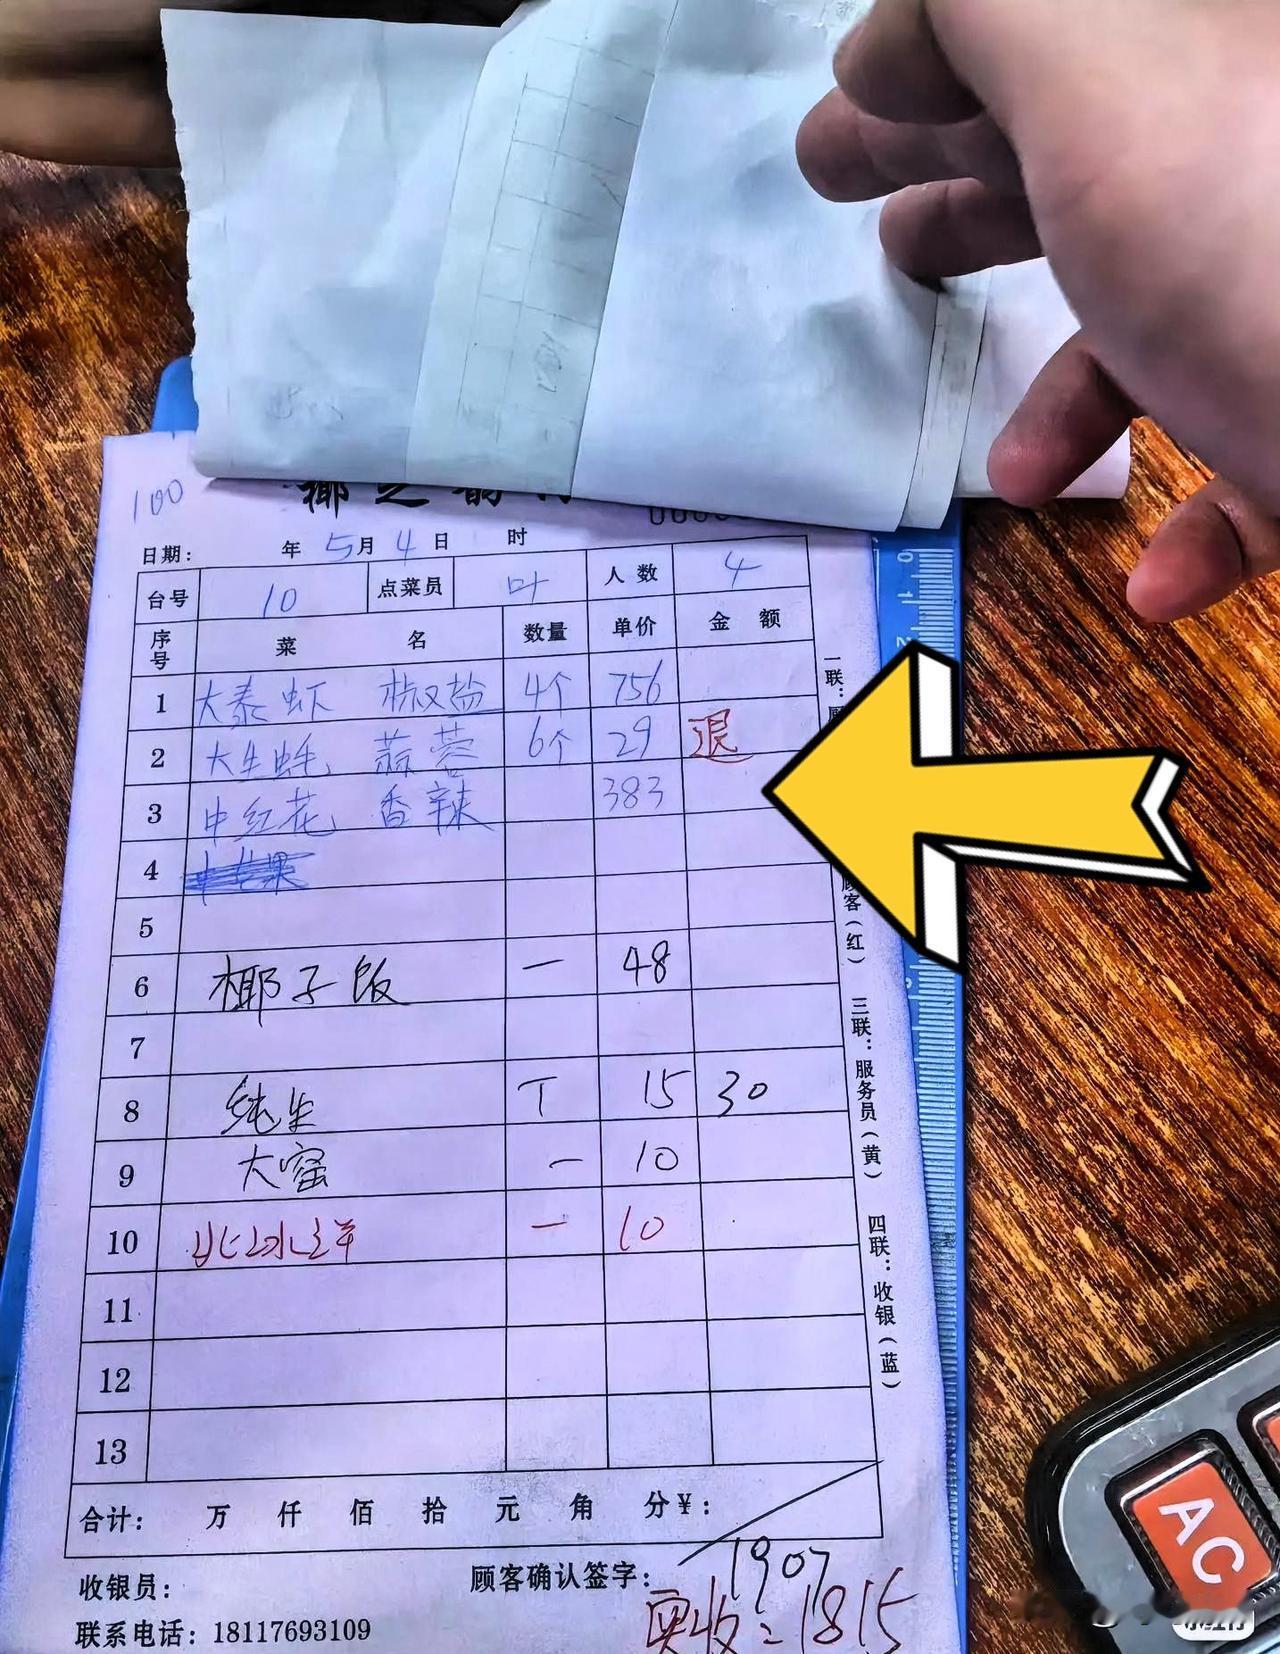 100
椰之韵
日期： 年 5月 4日 时
台号 10 点菜员 叶 人数 4
序号 菜 名 数量 单价 金 额
1 大泰虾 椒盐 4个 756
2 大生蚝 蒜蓉 6个 29 退
3 中红花 香辣 383
4
5
6 椰子饭 一 48
7
8 纯生 T 15 30
9 大窑 一 10
10 北冰洋 一 10
11
12
13
合计： 万 仟 佰 拾 元 角 分￥：
1907
收银员： 顾客确认签字：
实收：1815
联系电话：18117693109
一联：
顾客（红）
三联：服务员（黄）
四联：收银（蓝）
0
1
2
AC